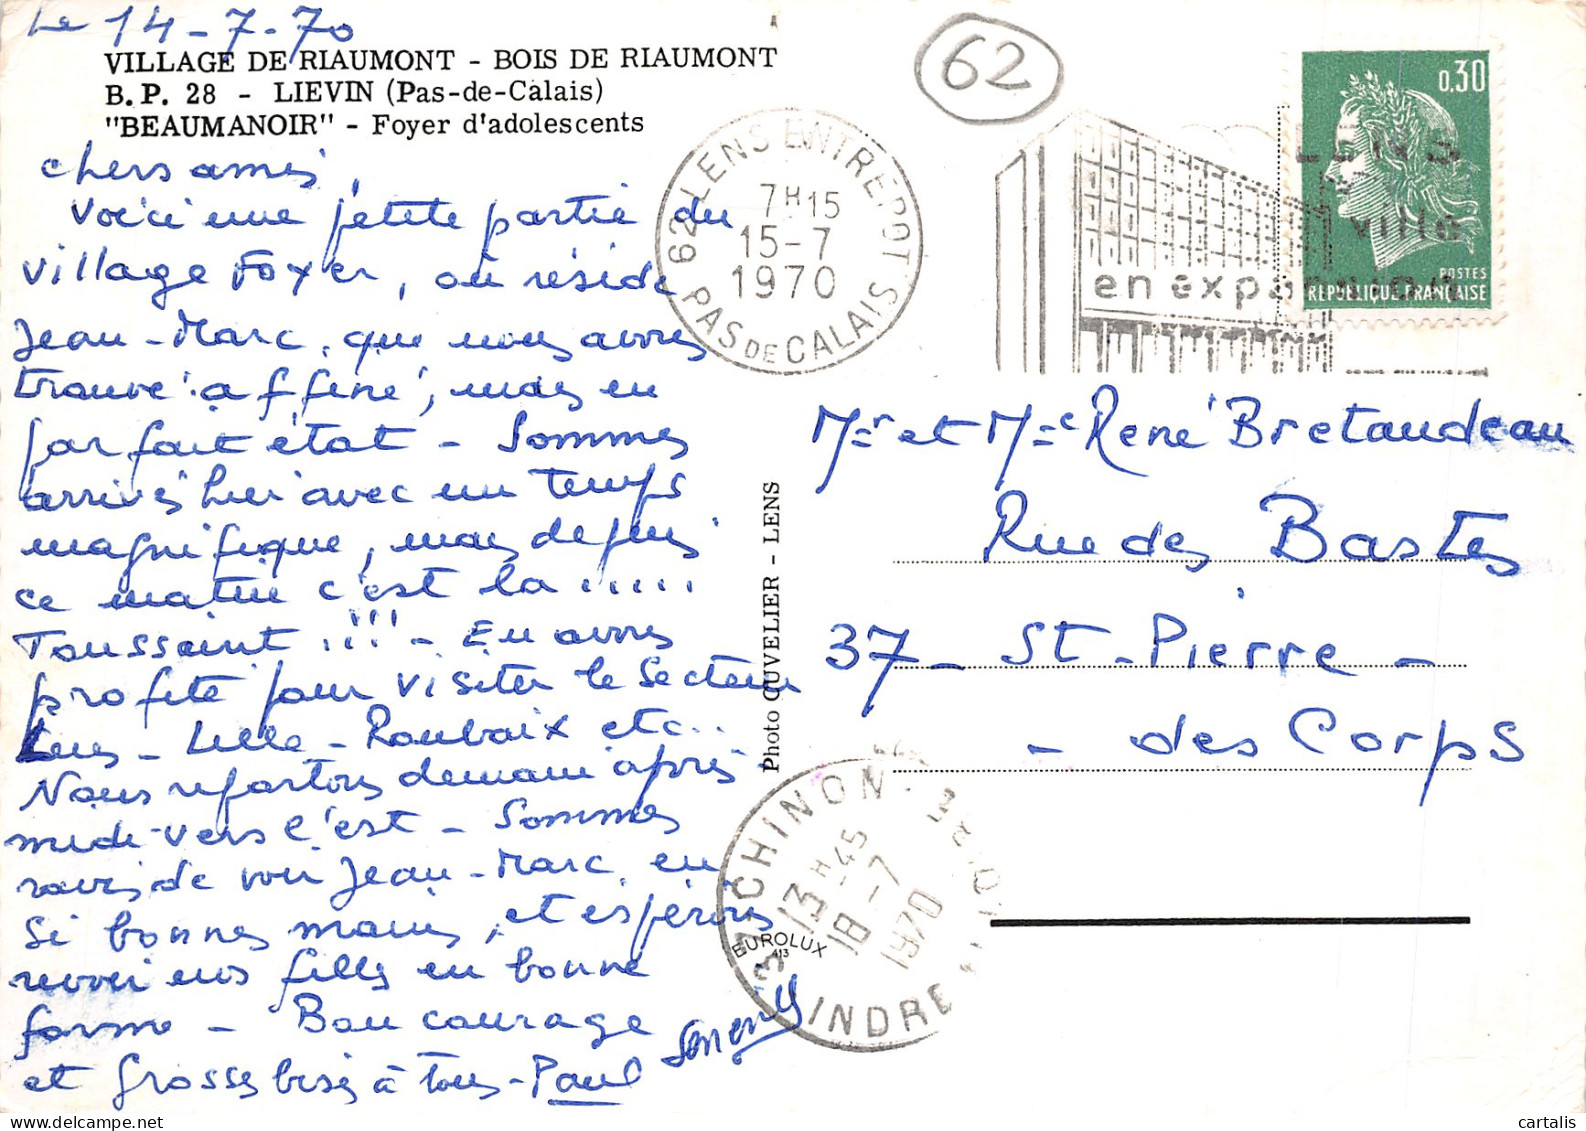 Le 14-7-70
VILLAGE DE RIAUMONT - BOIS DE RIAUMONT
B.P. 28 - LIEVIN (Pas-de-Calais)
"BEAUMANOIR" - Foyer d'adolescents
chers amis,
Voici une petite partie du
village Foyer, où réside
Jean-Marc, que nous avons
trouvé affiné, mais en
parfait état - Sommes
arrivés hier avec un temps
magnifique, mais depuis
ce matin c'est la .....
Toussaint !!! - En avons
profité pour visiter le secteur
Lens - Lille - Roubaix etc...
Nous repartons demain après-
midi vers l'est - Sommes
ravis de voir Jean-Marc en
si bonnes mains, et espérons
revoir nos filles en bonne
forme - Bon courage
et grosses bises à tous - Paul
62
62 LENS ENTREPOT
7H15
15-7
1970
PAS DE CALAIS
LENS
ville
en expansion
0,30
POSTES
REPUBLIQUE FRANÇAISE
Photo CUVELIER - LENS
Mr et Me René Bretaudeau
Rue des Bastes
37 - St-Pierre -
- des Corps
37 CHINON
13H45
18-7
1970
INDRE
EUROLUX
413
cartalis